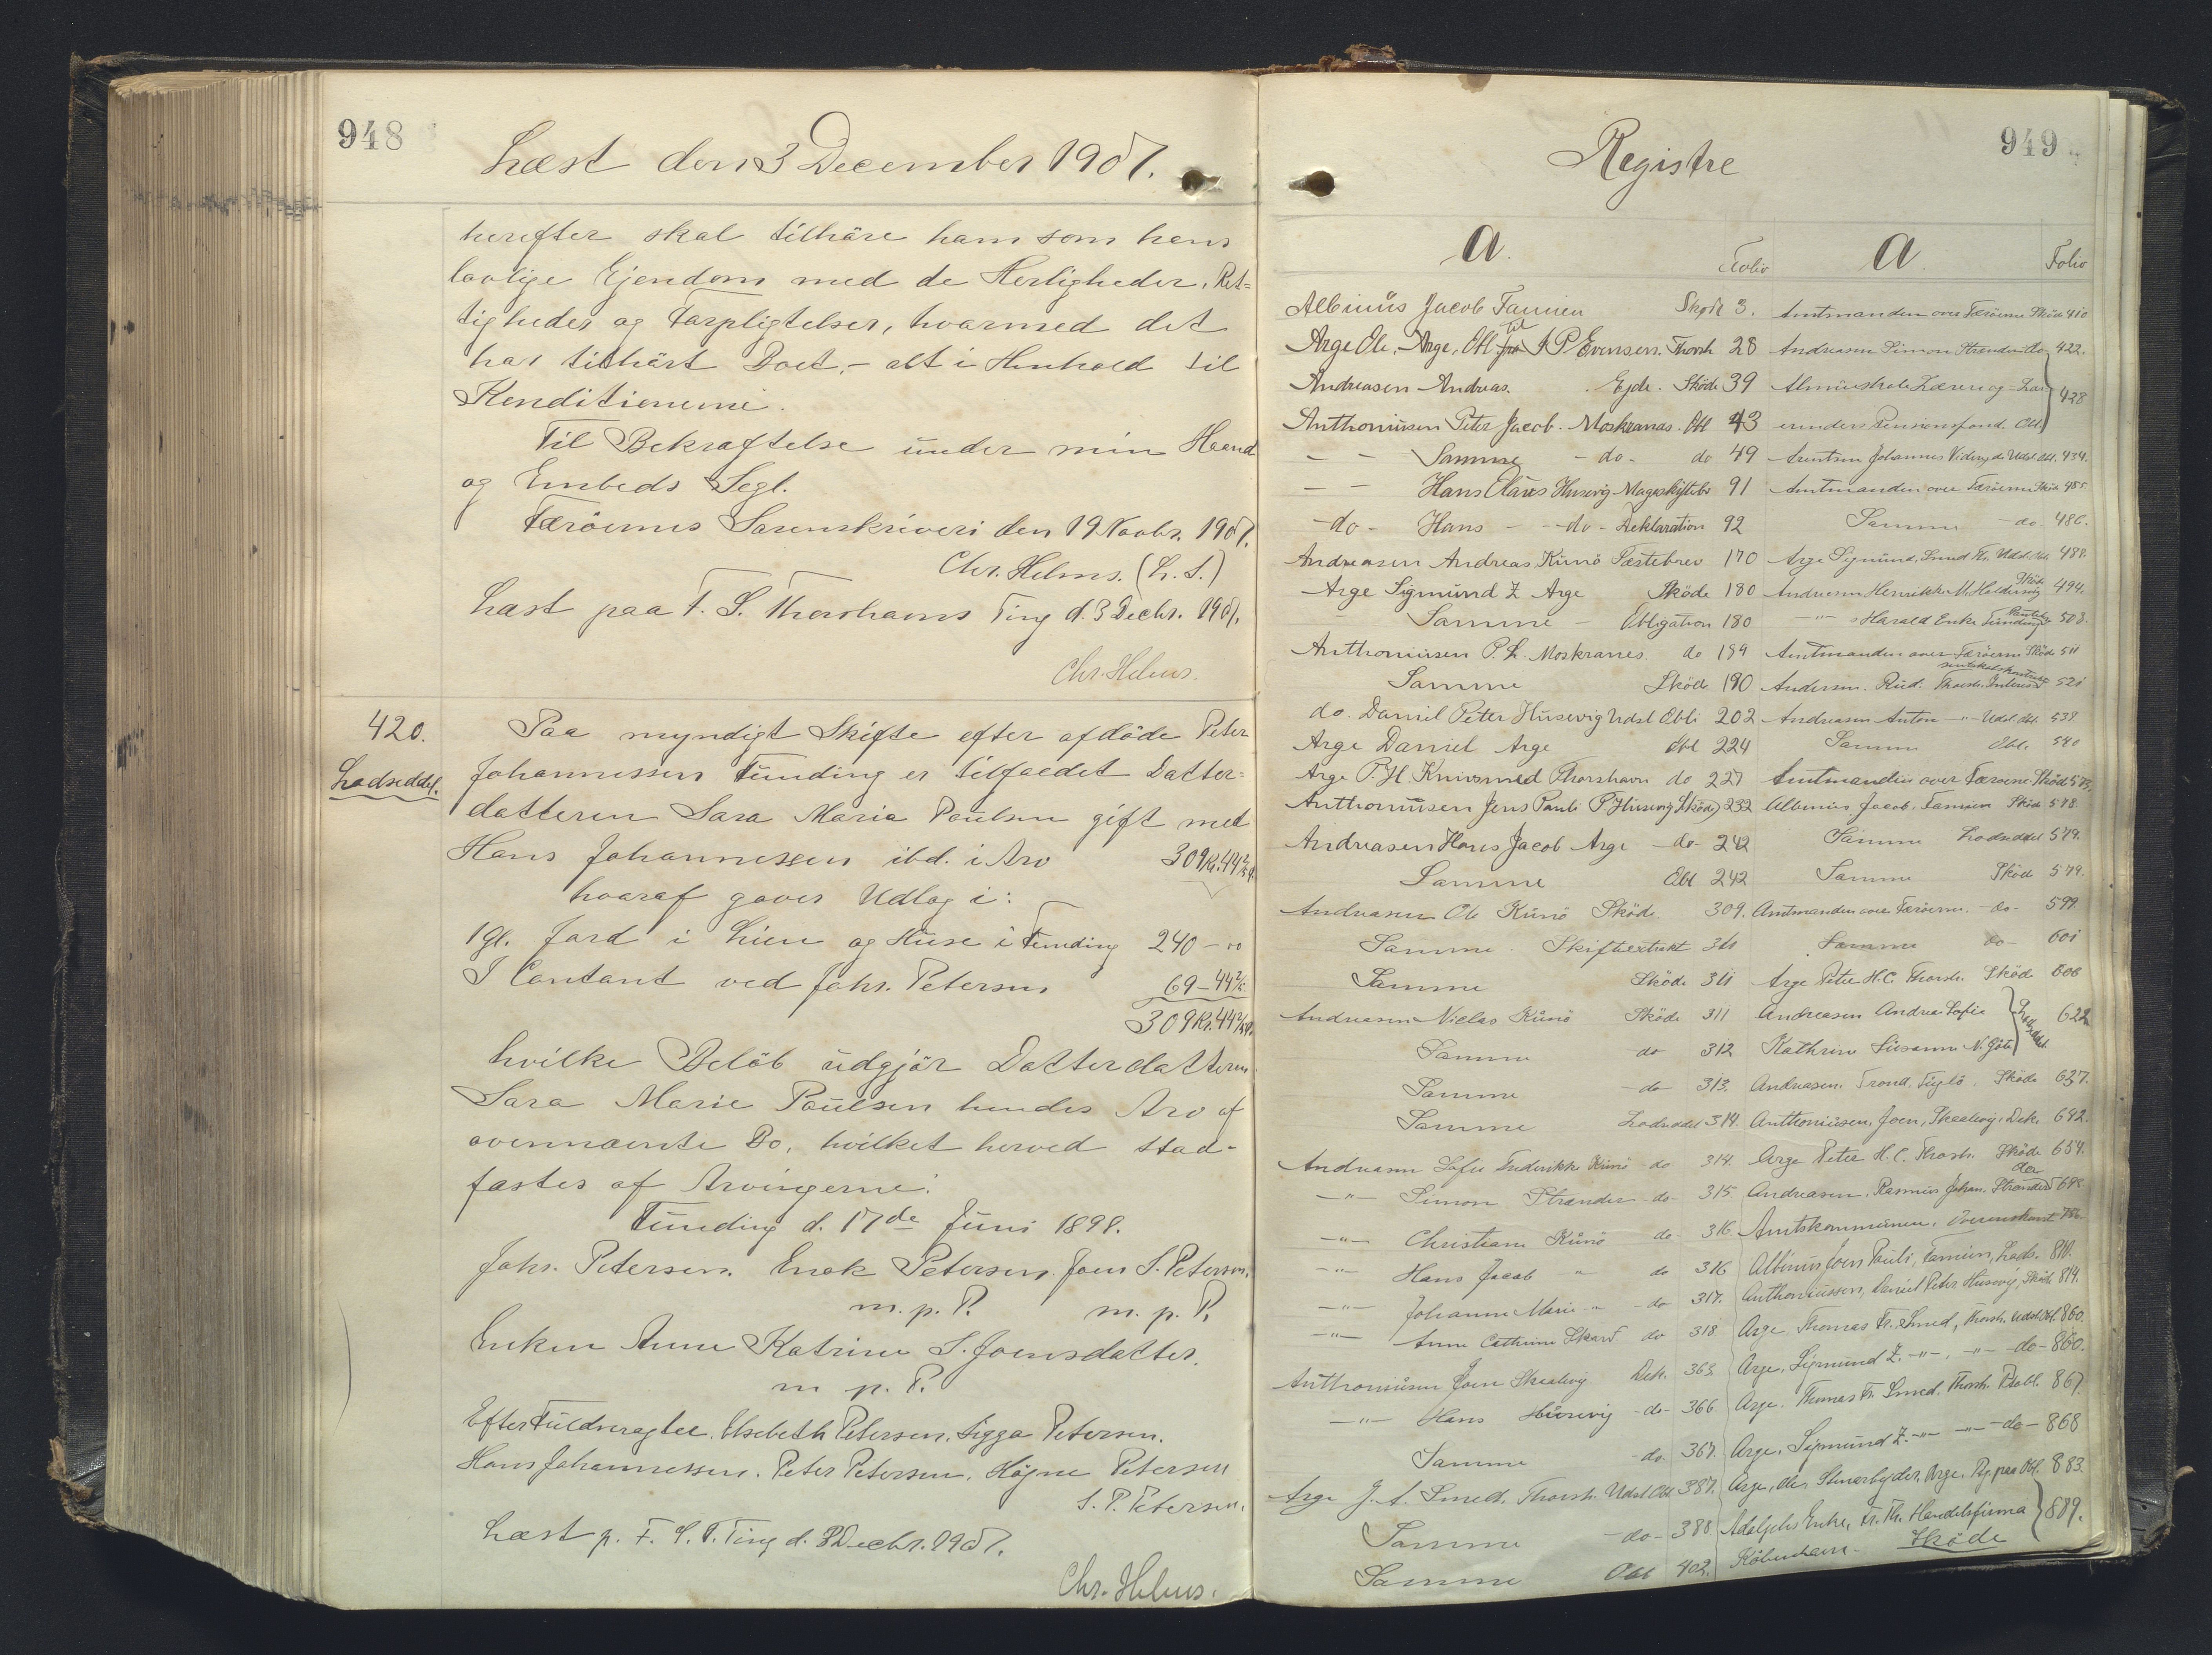 948
Læst den 3 December 1907.
herefter skal tilhöre ham som hans
lovlige Ejendom med de Herligheder, Ret-
tigheder og Forpligtelser, hvormed det
har tilhört Boet, - alt i Henhold til
Konditionerne.
Til Bekræftelse under min Haand
og Embeds Segl.
Færöernes Sorenskriveri den 19 Novbr. 1907.
Chr. Helms. (L. S.)
Læst paa F. S. Thorshavns Ting d. 3 Decbr. 1907.
Chr. Helms.
420.
Lodseddel.
Paa myndigt Skifte efter afdöde Peter
Johannessen Funding er tilfaldet Datter-
datteren Sara Maria Poulsen gift med
Hans Johannessen ibd. i Arv 309 Kr. 44 2/5 ø.
hvoraf gaves Udlag i:
1 gl. Jord i Lien og Huse i Funding 240 - 00
I Contant ved Johs. Petersen 69 - 44 2/5
309 Kr. 44 2/5 ø.
hvilke Belöb udgjör Datterdatteren
Sara Marie Poulsen hendes Arv af
ovennævnte Bo, hvilket herved stad-
fæstes af Arvingerne.
Funding d. 17de Juni 1898.
Johs. Petersen. Enok Petersen. Joen S. Petersen.
m. p. P. m. p. P.
Enken Anne Katrine S. Joensdatter.
m. p. P.
Efter Fuldmagt Elsebeth Petersen. Sigga Petersen.
Hans Johannessen. Peter Petersen. Högne Petersen
S. P. Petersen.
Læst p. F. S. T. Ting d. 3 Decbr. 1907.
Chr. Helms.
949
Registre
A. Folio
Albinus Jacob Famien Skøde 3.
Arge Ole, Arge, Obl. til J P Evensen. Thorsh 28
Andreasen Andreas. Ejde. Sköde 39
Anthoniusen Peter Jacob. Moskranæs. Obl 43
— — Samme - do - do 49
— — Hans Claus Husevig Mageskiftebr 91
- do - Hans - - do - Deklaration 92
Andreasen Andreas, Kunö Fæstebrev 170
Arge Sigmund Z Arge Sköde 180
Samme - Obligation 180
Anthoniusen P. L. Moskranes. do 189
Samme Sköde 190
do. Daniel Peter Husevig Udsl Obli 202
Arge Daniel Arge Obl 224
Arge P. H. Knivsmed Thorshavn do 227
Anthoniusen Jens Pauli P. Husevig Sköde 232
Andreasen Hans Jacob Arge - do - 242
Samme Obl 242
Andreasen Ole Kunö Sköde. 309.
Samme. Skifteextrakt 311
Samme Sköde 311
Andreasen Niclas Kunö Sköde 311
Samme do 312
Samme do 313.
Samme Lodseddel 314.
Andreasen Sofie Frederikke Kunö do 314.
—"— Simon Strander - do - 315
—"— Christiane Kunö do 316
—"— Hans Jacob " do 316
—"— Johanne Marie " do 317.
—"— Anne Cathrine Skard do 318
Anthoniusen Joen Skaalevig Dek. 363
—"— Hans Husevig - do - 366
Samme do. 367.
Arge J. A. Smed. Thorsh. Udsl Obl 387.
Samme - do - 388
Samme Obl 402.
A. Folio
Amtmanden over Færöerne Sköde 410
Andreasen Simon Strander do 422.
Almueskole Lærere og Lær
erinders Pensionsfond. Obl. 428
Arentsen Johannes Viderejde Udsl Obl. 434.
Amtmanden over Færöerne Sköde 485
Samme - do 486.
Arge Sigmund, Smed Th. Udsl. Obl. 488.
Andreasen Henrikke M. Heldersvig Sköde 494.
—"— Harald Enke Funding 508.
Amtmanden over Færöerne Sköde 511
Andersen. Rud. Thorsh. 521
Andreasen Anton —"— Udsl. Obl. 539.
Samme Obl. 540
Amtmanden over Færöerne. Sköde 573.
Albinus Jacob, Famien Sköde 578.
Samme Lodseddel 579.
Samme Sköde 579.
Amtmanden over Færöerne. - do - 599.
Samme do - 601
Arge Peter H. C. Thorsh. Sköde 606
Andreasen Andrea Sofie
Kathrine Susanne N. Göte Lodseddel. 622
Andreasen. Trond, Fuglö. Sköde 637.
Anthoniusen, Joen, Skaalevig, Dek. 642.
Arge Peter H. C. Thorsh. Sköde 654.
Andreasen, Rasmus Johan. Strander do
Amtskommunen, Overenskomst
Albinus Joen Pauli, Famien, Lods. 810.
Anthoniussen, Daniel Peter Husevig, Sköde 814.
Arge Thomas Fr. Smed, Thorsh. Udsl. Obl. 860.
Arge, Sigmund Z. —"— —"— - do - 860.
Arge, Thomas Fr. Smed. Thorsh. Pbobl. 867
Arge, Sigmund Z. —"— —"— - do - 868
Arge, Ole, Stenarbejder, Arge. Pg. paa Obl. 883.
Adolphs Enke, Fr. Th. Handelsfirma
Köbenhavn. Sköde 889.